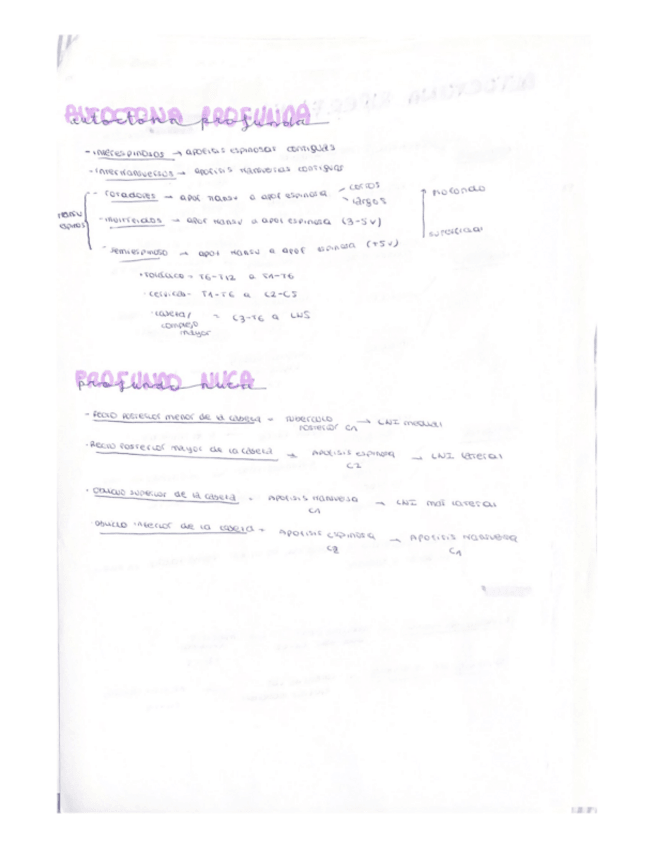 AUTOCTONA PROFUNDA
autoctona profunda
- interespinosos → apofisis espinosas contiguas
- intertransversos → apofisis transversas contiguas
- rotadores → apof transv a apof espinosa - cortos
- largos
profundo
transv
espinos
- multifidos → apof transv a apof espinosa (3-5v)
superficial
- semiespinoso → apof transv a apof espinosa (+5v)
· torácico - T6-T12 a T1-T6
· cervical - T1-T6 a C2-C5
· cabeza/
complexo
mayor
- C3-T6 a LNS
PROFUNDO NUCA
profundo nuca
- Recto posterior menor de la cabeza - tuberculo
posterior C1 → LNI medial
· Recto posterior mayor de la cabeza → Apofisis espinosa
C2 → LNI lateral
· oblicuo superior de la cabeza - Apofisis transversa
C1 → LNI mas lateral
· oblicuo inferior de la cabeza - Apofisis espinosa
C2 → Apofisis transversa
C1